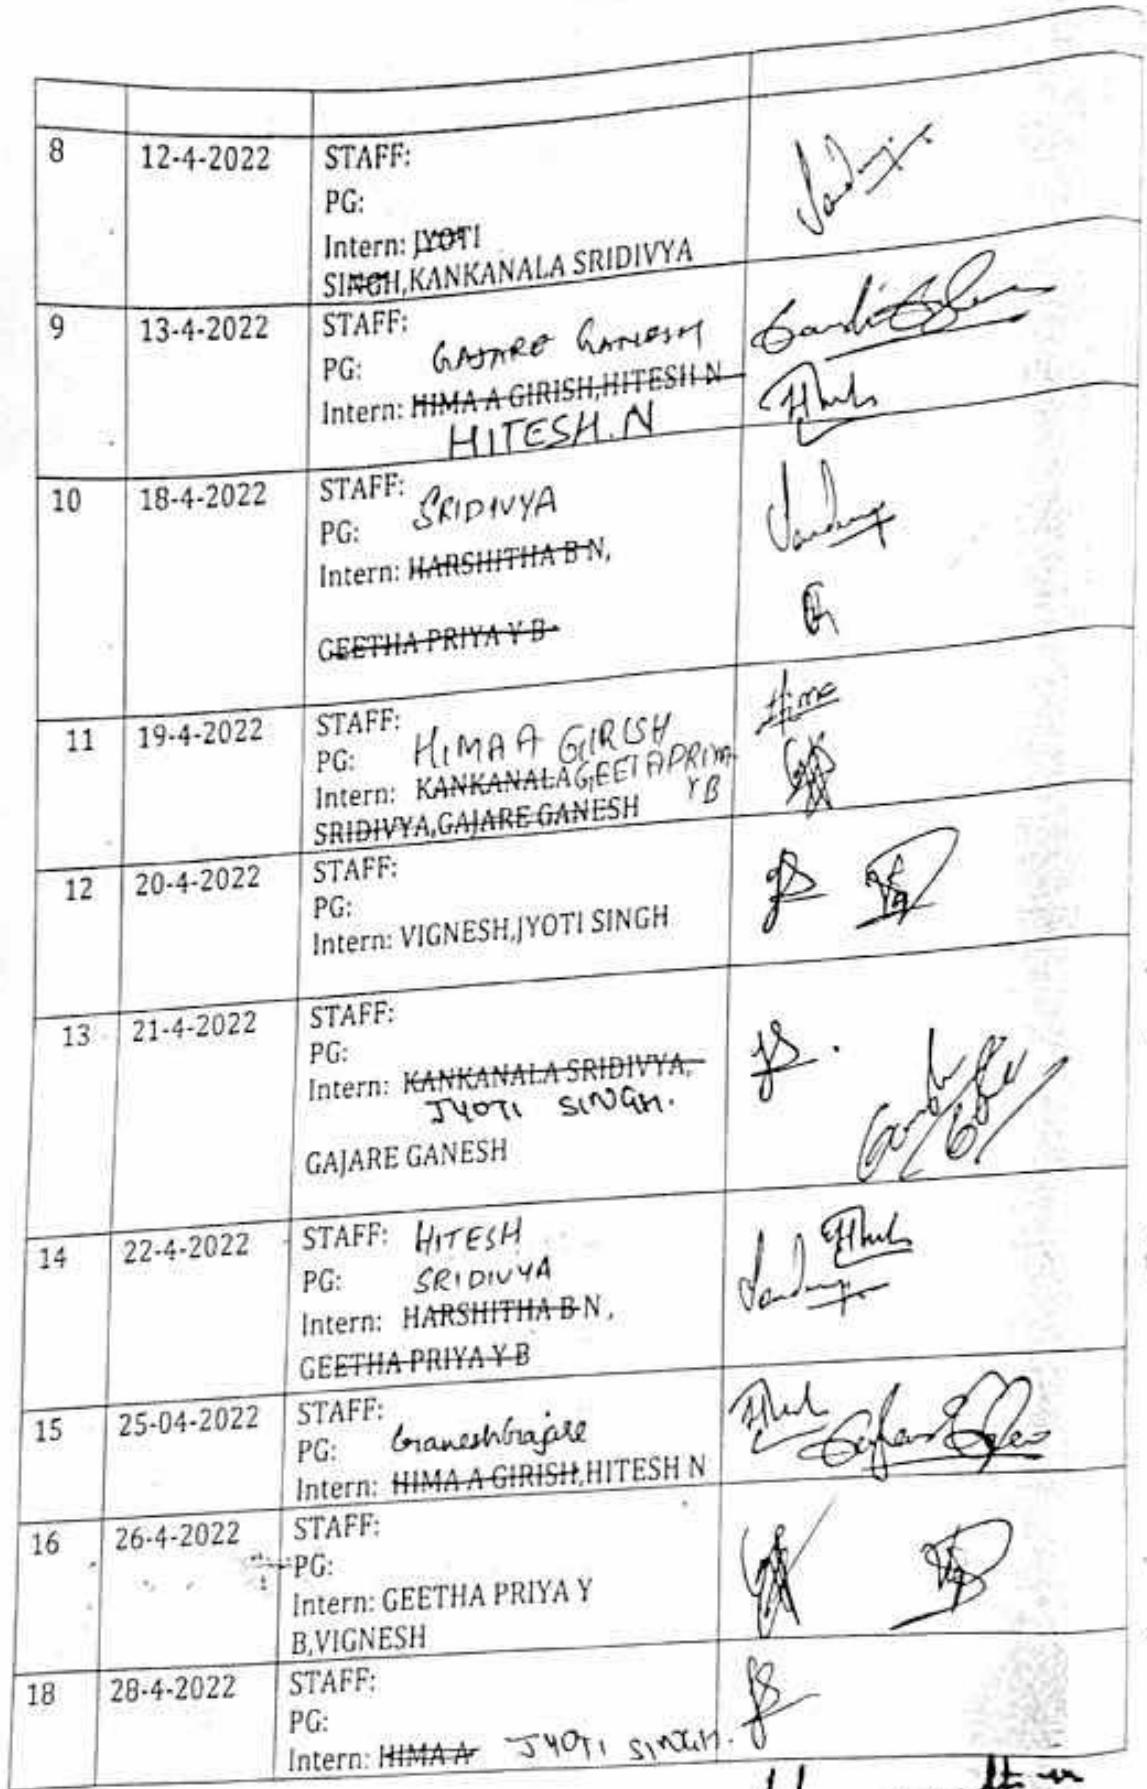 8 12-4-2022 STAFF:
PG:
Intern: JYOTI
SINGH,KANKANALA SRIDIVYA
9 13-4-2022 STAFF:
PG: GAJARE GANESH
Intern: HIMA A GIRISH,HITESH N
HITESH.N
10 18-4-2022 STAFF:
PG: SRIDIVYA
Intern: HARSHITHA B N,
GEETHA PRIYA Y B
11 19-4-2022 STAFF:
PG: HIMA A GIRISH Hima
Intern: KANKANALA GEETAPRIYA
Y B
SRIDIVYA,GAJARE GANESH
12 20-4-2022 STAFF:
PG:
Intern: VIGNESH,JYOTI SINGH
13 21-4-2022 STAFF:
PG:
Intern: KANKANALA SRIDIVYA,
JYOTI SINGH.
GAJARE GANESH
14 22-4-2022 STAFF: HITESH
PG: SRIDIVYA
Intern: HARSHITHA B N,
GEETHA PRIYA Y B
15 25-04-2022 STAFF:
PG: Ganesh Gajare
Intern: HIMA A GIRISH,HITESH N
16 26-4-2022 STAFF:
PG:
Intern: GEETHA PRIYA Y
B,VIGNESH
18 28-4-2022 STAFF:
PG:
Intern: HIMA A JYOTI SINGH.